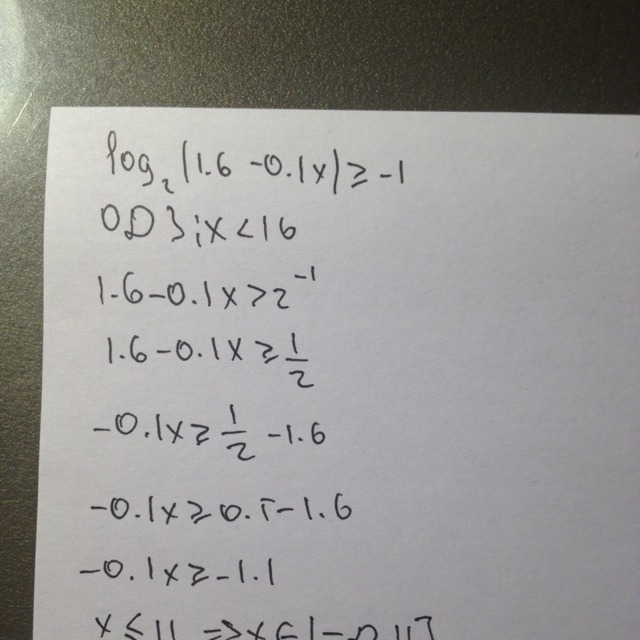 log₂(1.6-0.1x)≥-1
ОДЗ: x<16
1.6-0.1x>2⁻¹
1.6-0.1x≥1/2
-0.1x≥1/2-1.6
-0.1x≥0.5-1.6
-0.1x≥-1.1
x≤11 =>x∈